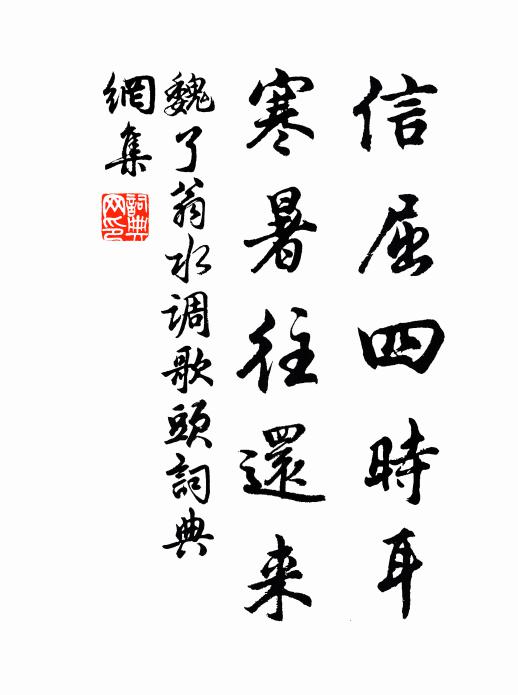 信屈四時耳
寒暑往還来
魏了翁水调歌頭詞典
網集
詞典
网印